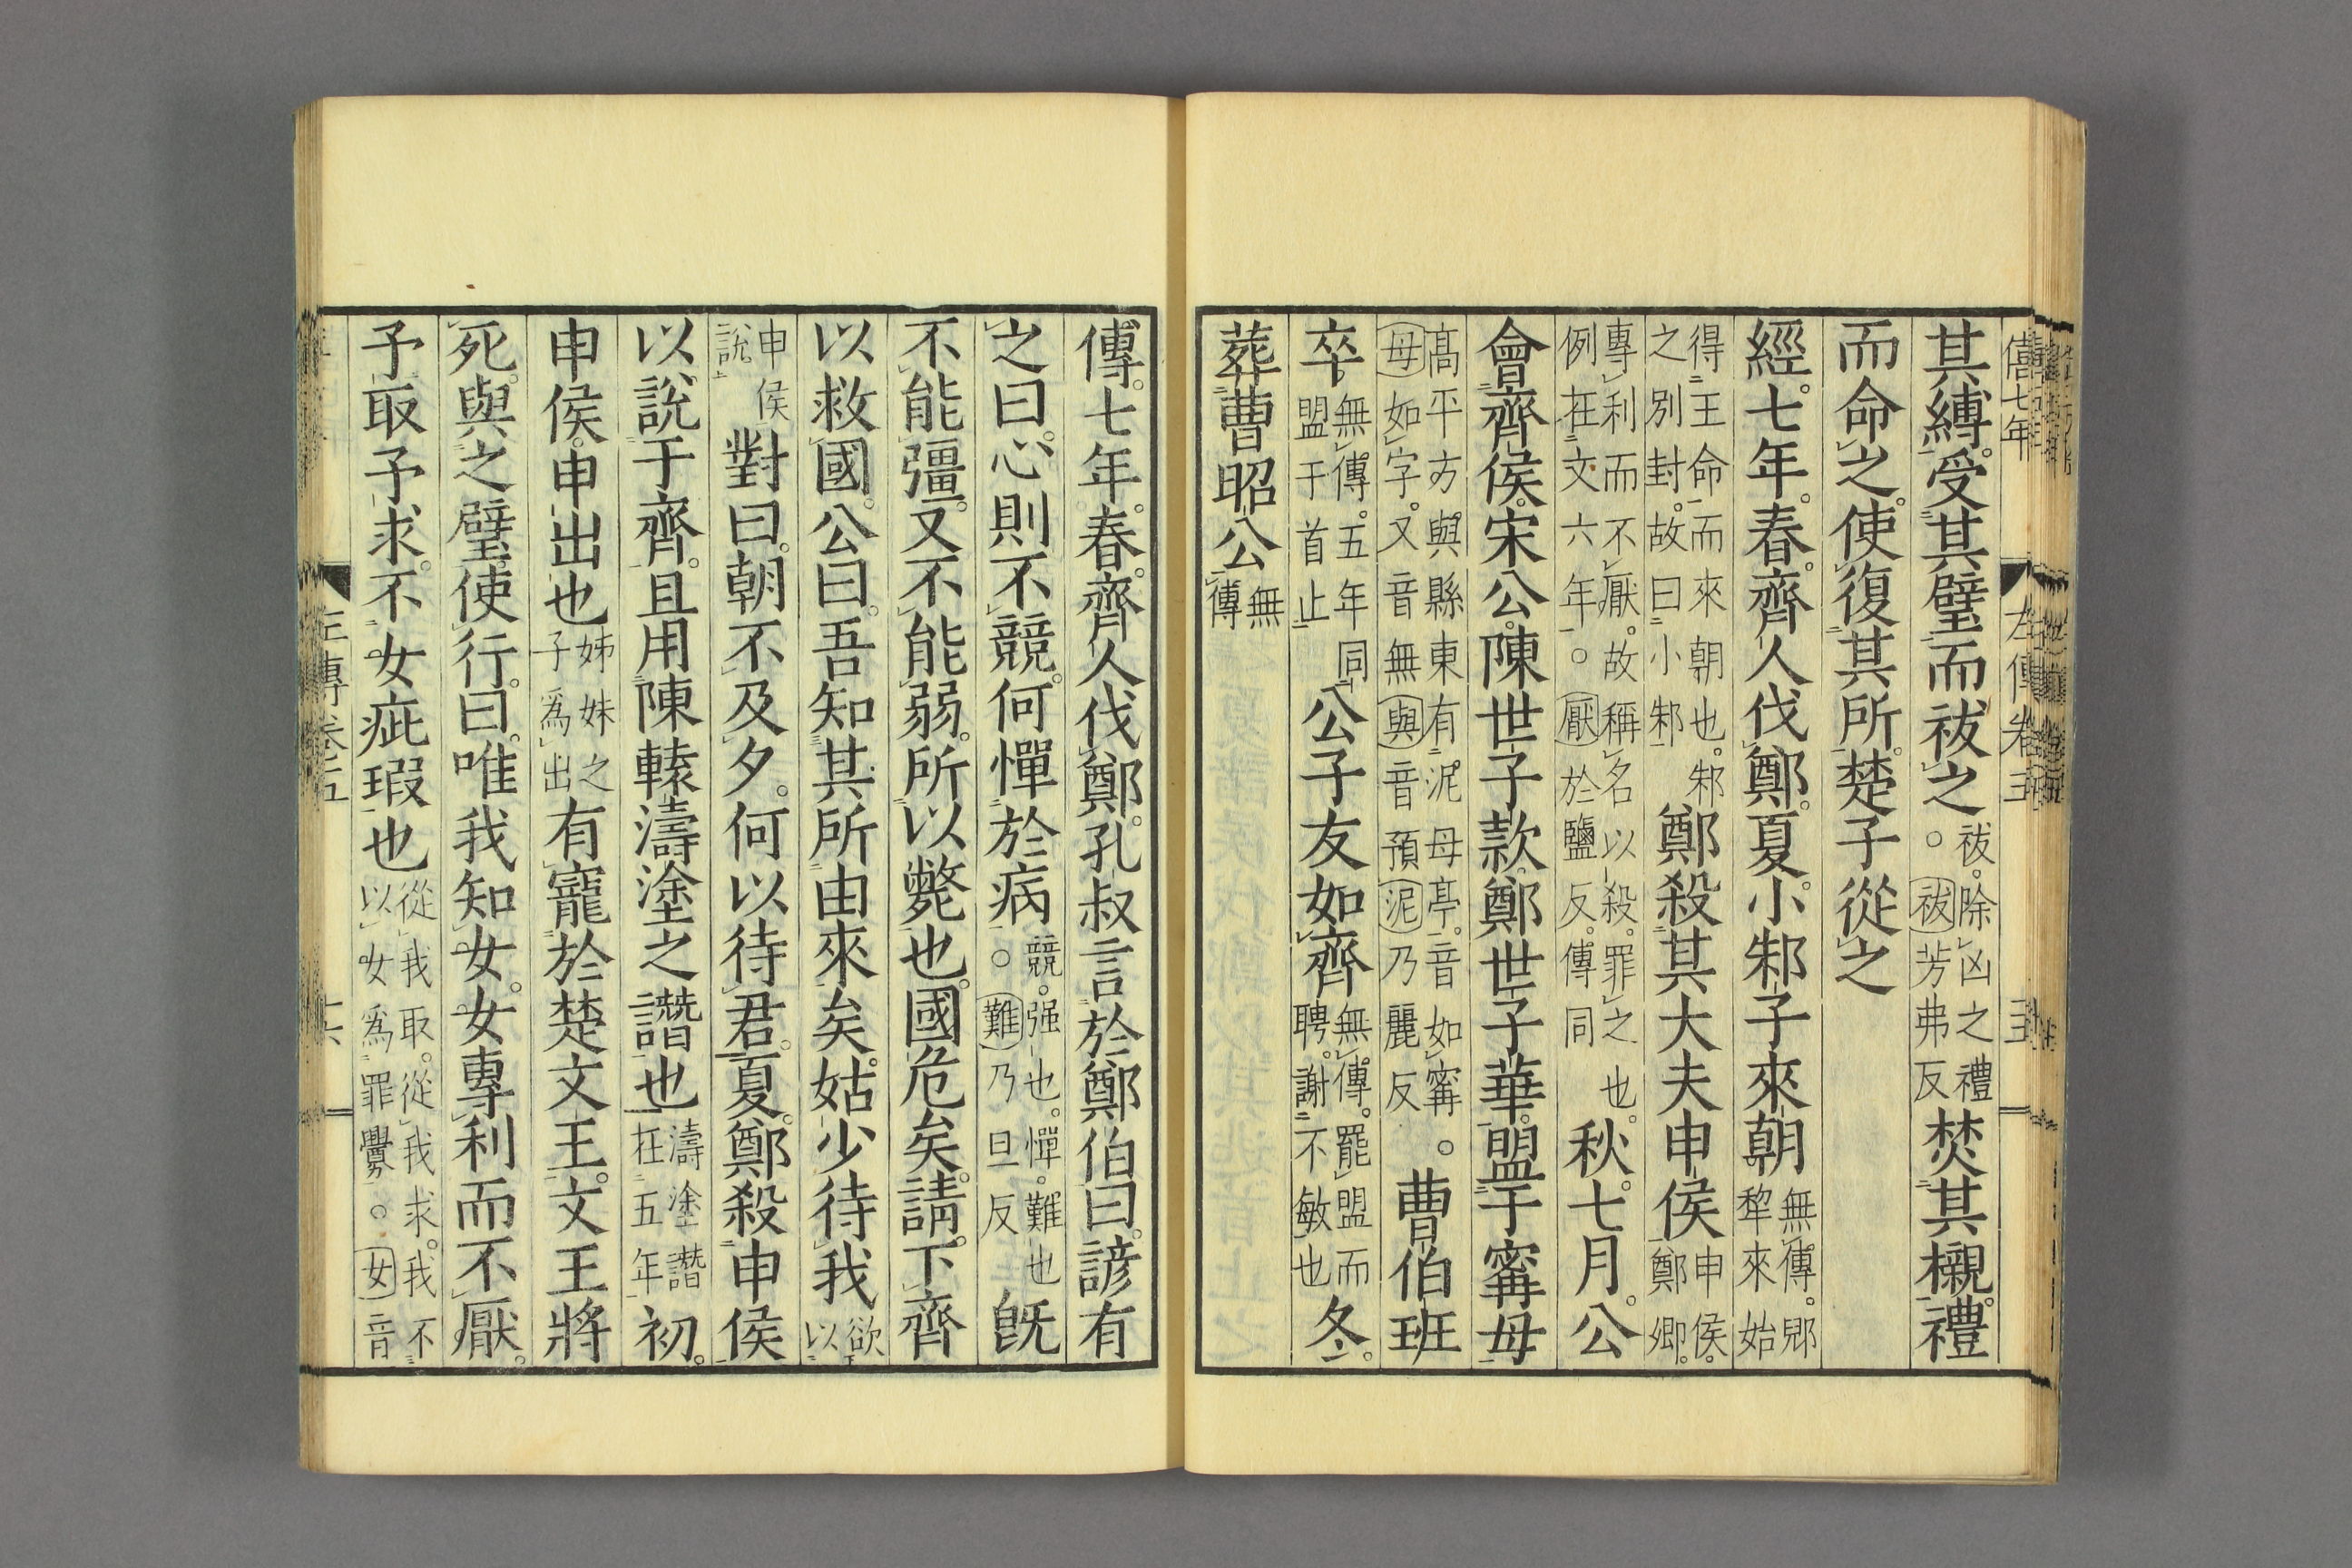 僖七年
其縛受其璧而祓之。祓除凶之禮祓芳弗反焚其櫬禮
而命之使復其所楚子從之
經七年春齊人伐鄭夏小邾子來朝無傳郳犂來始
得王命而來朝也邾之別封故曰小邾鄭殺其大夫申侯申侯鄭卿
專利而不厭故稱名以殺罪之也例在文六年。厭於鹽反傳同秋七月公
會齊侯宋公陳世子款鄭世子華盟于甯母
高平方與縣東有泥母亭音如甯。母如字又音無與音預泥乃麗反曹伯班
卒無傳五年同盟于首止公子友如齊無傳罷盟而聘謝不敏也冬
葬曹昭公無傳
傳七年春齊人伐鄭孔叔言於鄭伯曰諺有
之曰心則不競何憚於病。競强也憚難也難乃旦反旣
不能彊又不能弱所以斃也國危矣請下齊
以救國公曰吾知其所由來矣姑少待我欲以
申侯說對曰朝不及夕何以待君夏鄭殺申侯
以說于齊且用陳轅濤塗之譖也濤塗譖在五年初
申侯申出也姊妹之子爲出有寵於楚文王文王將
死與之璧使行曰唯我知女女專利而不厭
予取予求不女疵瑕也從我取從我求我不以女爲罪釁。女音